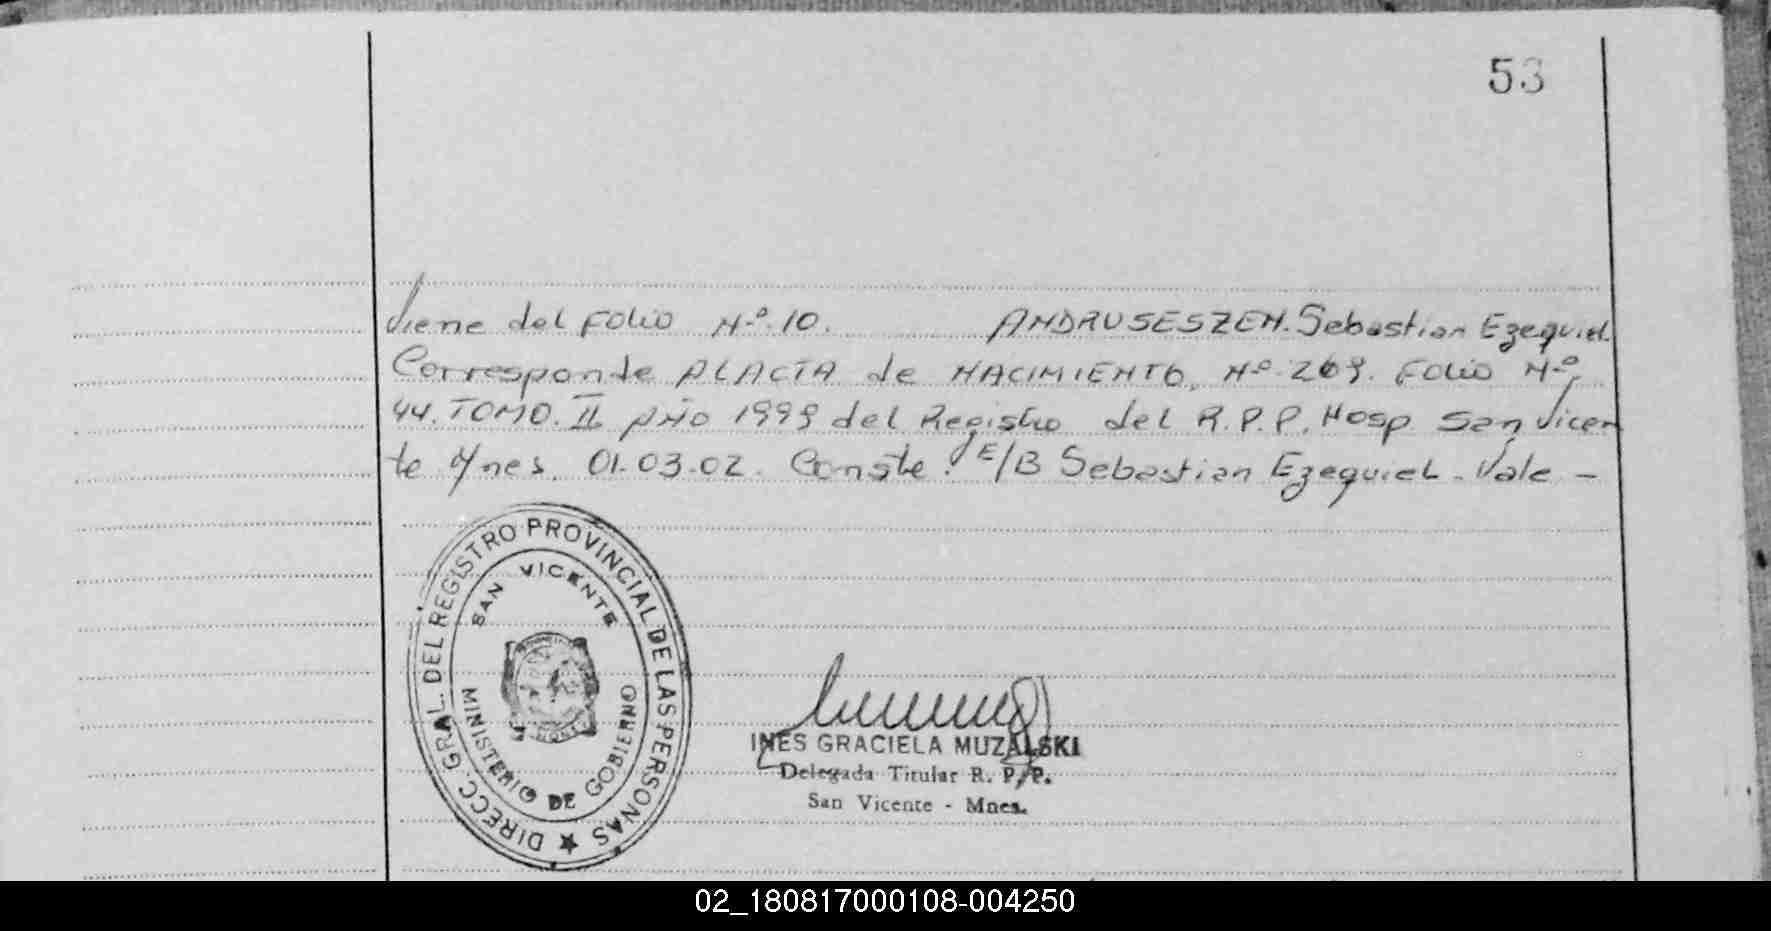 53
Viene del Folio Nº 10. ANDRUSESZEN. Sebastian Ezequiel
Corresponde Al ACTA de NACIMIENTO, Nº 269. Folio Nº
44. TOMO. II AÑO 1999 del Registro del R.P.P. Hosp San Vicen
te Mnes. 01.03.02. Conste. E/B Sebastian Ezequiel. Vale -
DIRECC. GRAL. DEL REGISTRO PROVINCIAL DE LAS PERSONAS
SAN VICENTE
MINISTERIO DE GOBIERNO
INES GRACIELA MUZALSKI
Delegada Titular R. P. P.
San Vicente - Mnes.
02_180817000108-004250